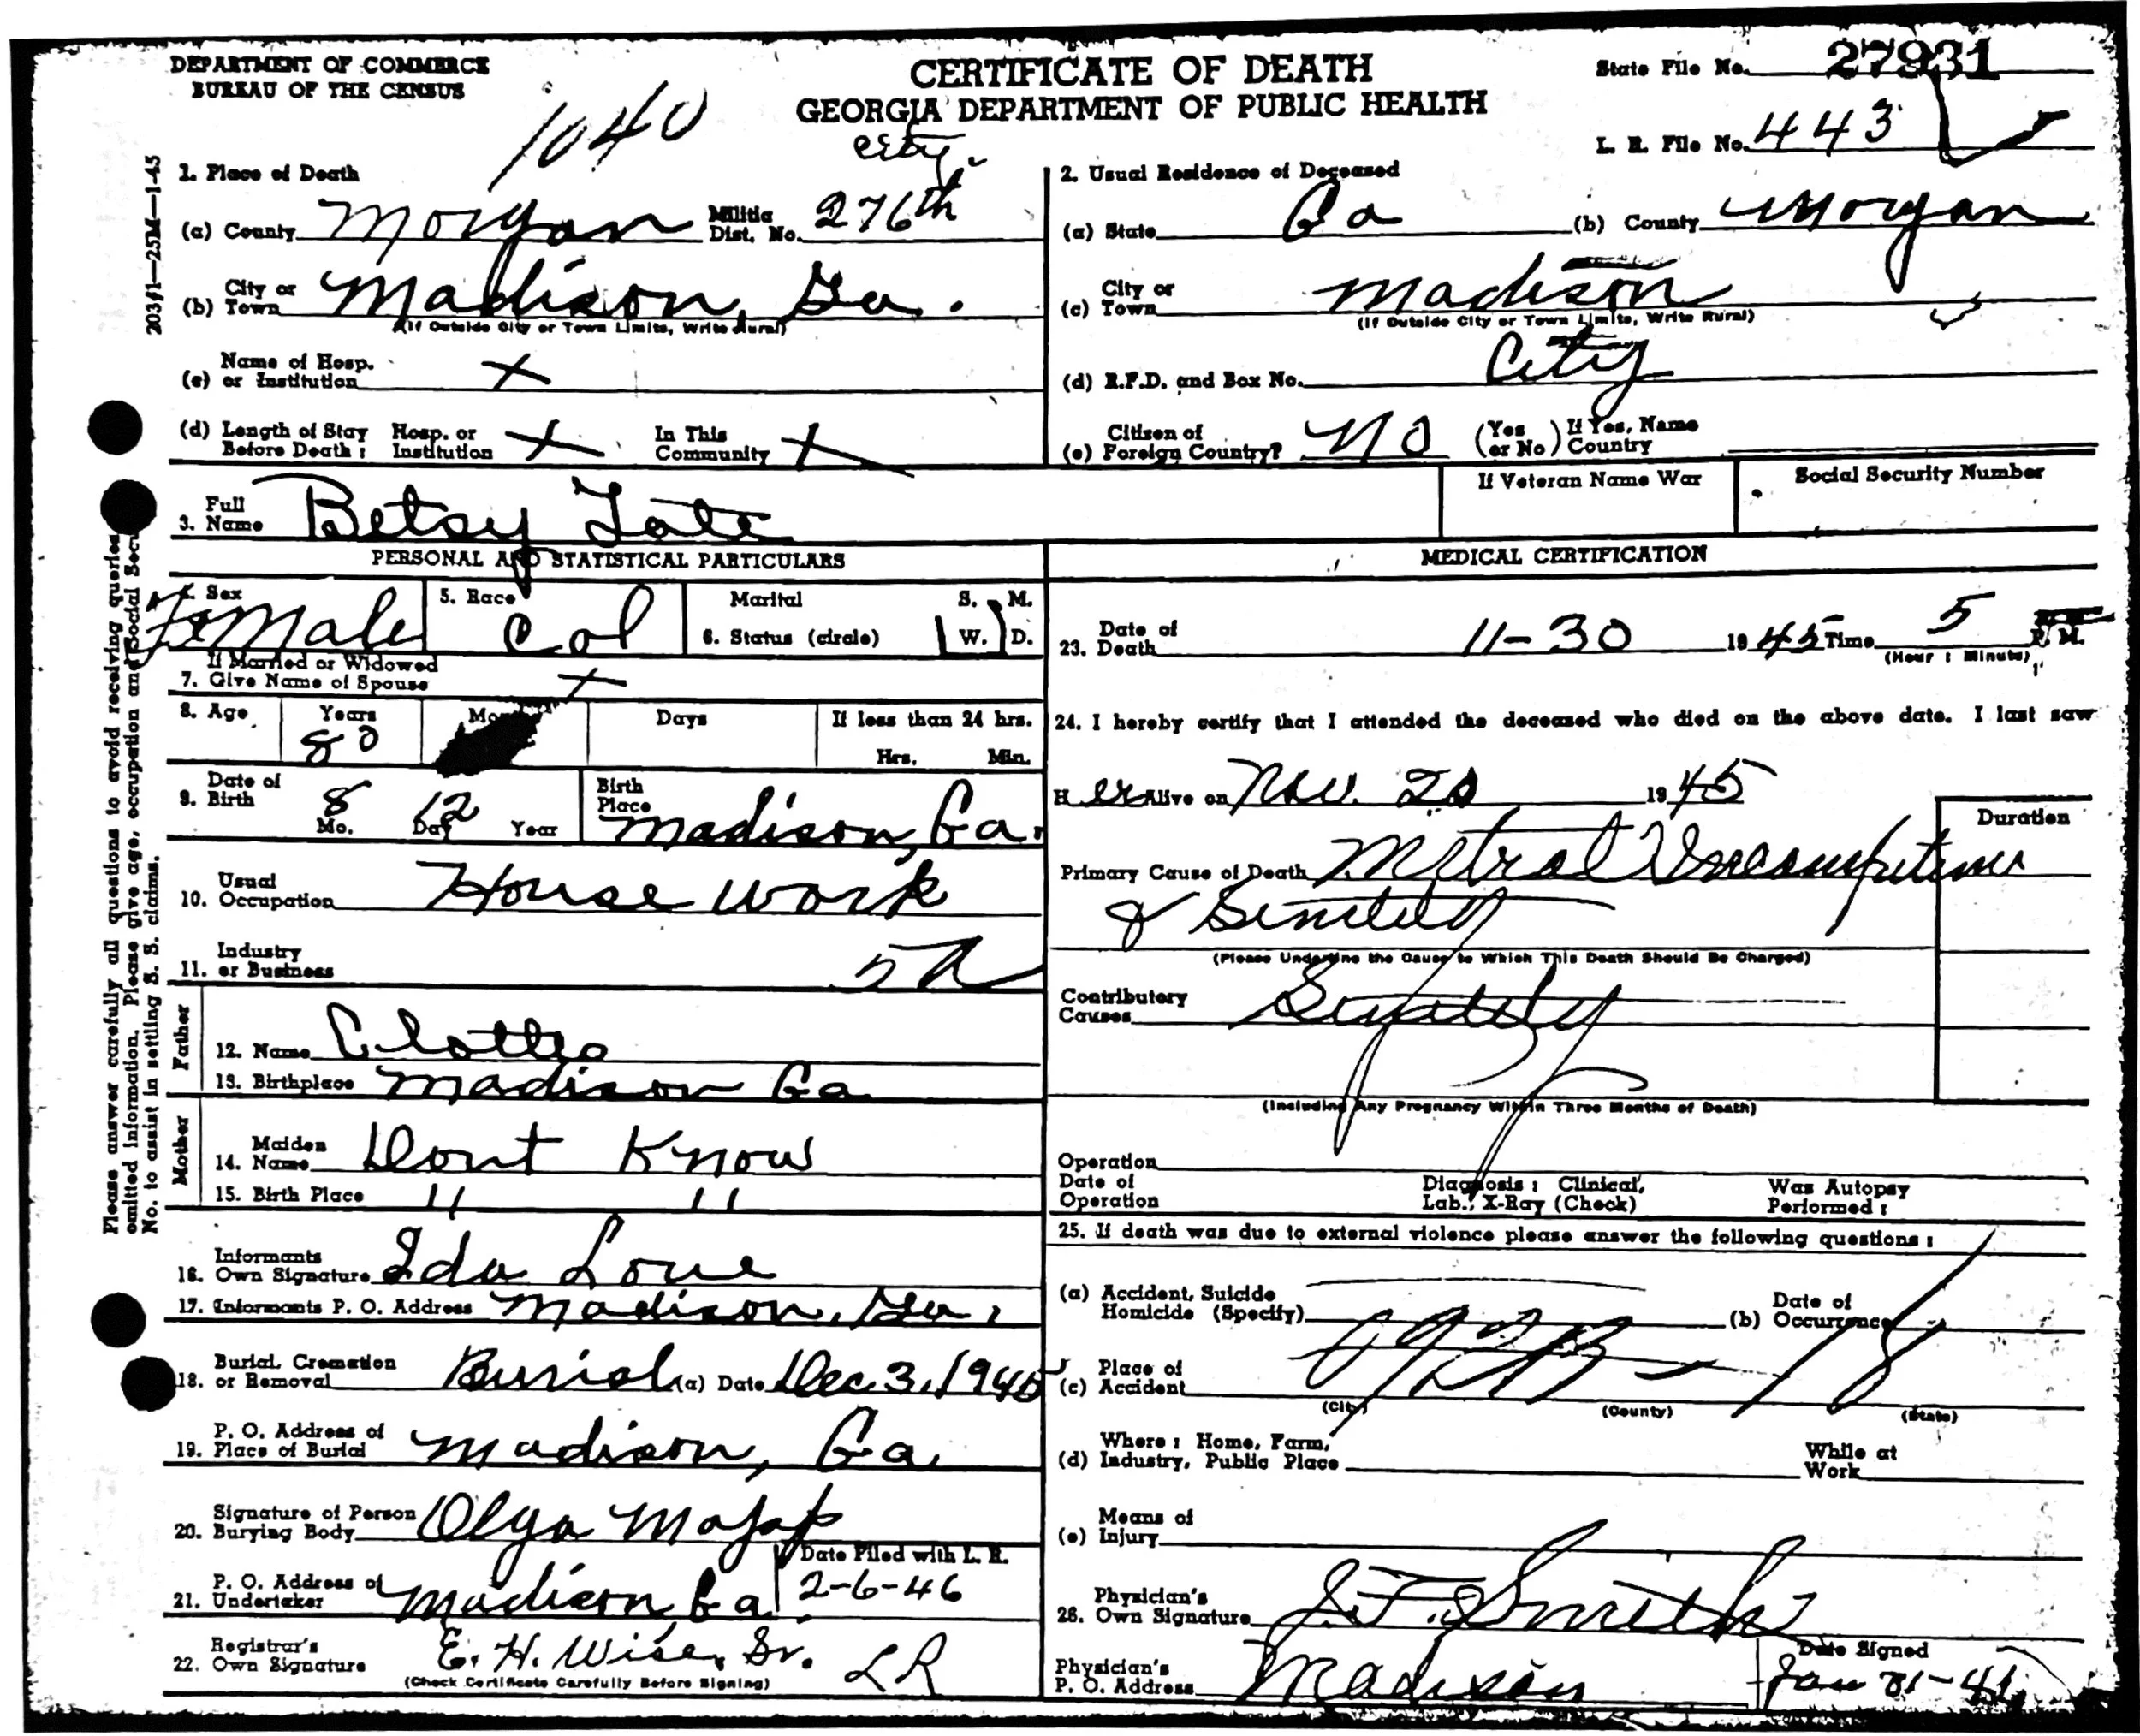 DEPARTMENT OF COMMERCE
BUREAU OF THE CENSUS
1040
CERTIFICATE OF DEATH
GEORGIA DEPARTMENT OF PUBLIC HEALTH
State File No. 27931
L. R. File No. 443
203f1—25M—1-45
1. Place of Death
City
(a) County Morgan Militia Dist. No. 276th
(b) City or Town Madison, Ga.
(If Outside City or Town Limits, Write Rural)
(c) Name of Hosp. or Institution X
(d) Length of Stay Before Death: Hosp. or Institution X In This Community X
2. Usual Residence of Deceased
(a) State Ga (b) County Morgan
(c) City or Town Madison
(If Outside City or Town Limits, Write Rural)
(d) R.F.D. and Box No. City
(e) Citizen of Foreign Country? NO (Yes or No) If Yes, Name Country
3. Full Name Betsy Tate
If Veteran Name War
Social Security Number
PERSONAL AND STATISTICAL PARTICULARS
4. Sex Female 5. Race Col 6. Marital Status (circle) S. M. W. D.
7. If Married or Widowed Give Name of Spouse X
8. Age Years 80 Mo Days If less than 24 hrs. Hrs. Min.
9. Date of Birth 8 Mo. 12 Day Year Birth Place Madison, Ga.
10. Usual Occupation House work
11. Industry or Business
Father
12. Name
13. Birthplace Madison Ga
Mother
14. Maiden Name Dont Know
15. Birth Place 11 11
16. Informants Own Signature Ida Love
17. Informants P. O. Address Madison, Ga.
18. Burial, Cremation or Removal Burial (a) Date Dec 3, 1945
19. P. O. Address of Place of Burial Madison, Ga.
20. Signature of Person Burying Body Olga Mapp
21. P. O. Address of Undertaker Madison, Ga. Date Filed with L. R. 2-6-46
22. Registrar's Own Signature E. H. Wise, Sr. LR
(Check Certificate Carefully Before Signing)
Please answer carefully all questions to avoid receiving queries
omitted information. Please give age, occupation and Social Secu
No. to assist in settling S. S. claims.
MEDICAL CERTIFICATION
23. Date of Death 11-30 1945 Time 5 P. M.
(Hour : Minute)
24. I hereby certify that I attended the deceased who died on the above date. I last saw
H er Alive on Nov. 1945
Duration
Primary Cause of Death Mitral Incompetence
& Senility
(Please Underline the Cause to Which This Death Should Be Charged)
Contributory Causes Senility
(Including Any Pregnancy Within Three Months of Death)
Operation
Date of Operation
Diagnosis: Clinical, Lab., X-Ray (Check)
Was Autopsy Performed:
25. If death was due to external violence please answer the following questions:
(a) Accident, Suicide Homicide (Specify) (b) Date of Occurrence
(c) Place of Accident
(City) (County) (State)
(d) Where: Home, Farm, Industry, Public Place While at Work
(e) Means of Injury
26. Physician's Own Signature Smith
Physician's P. O. Address Madison
Date Signed Jan